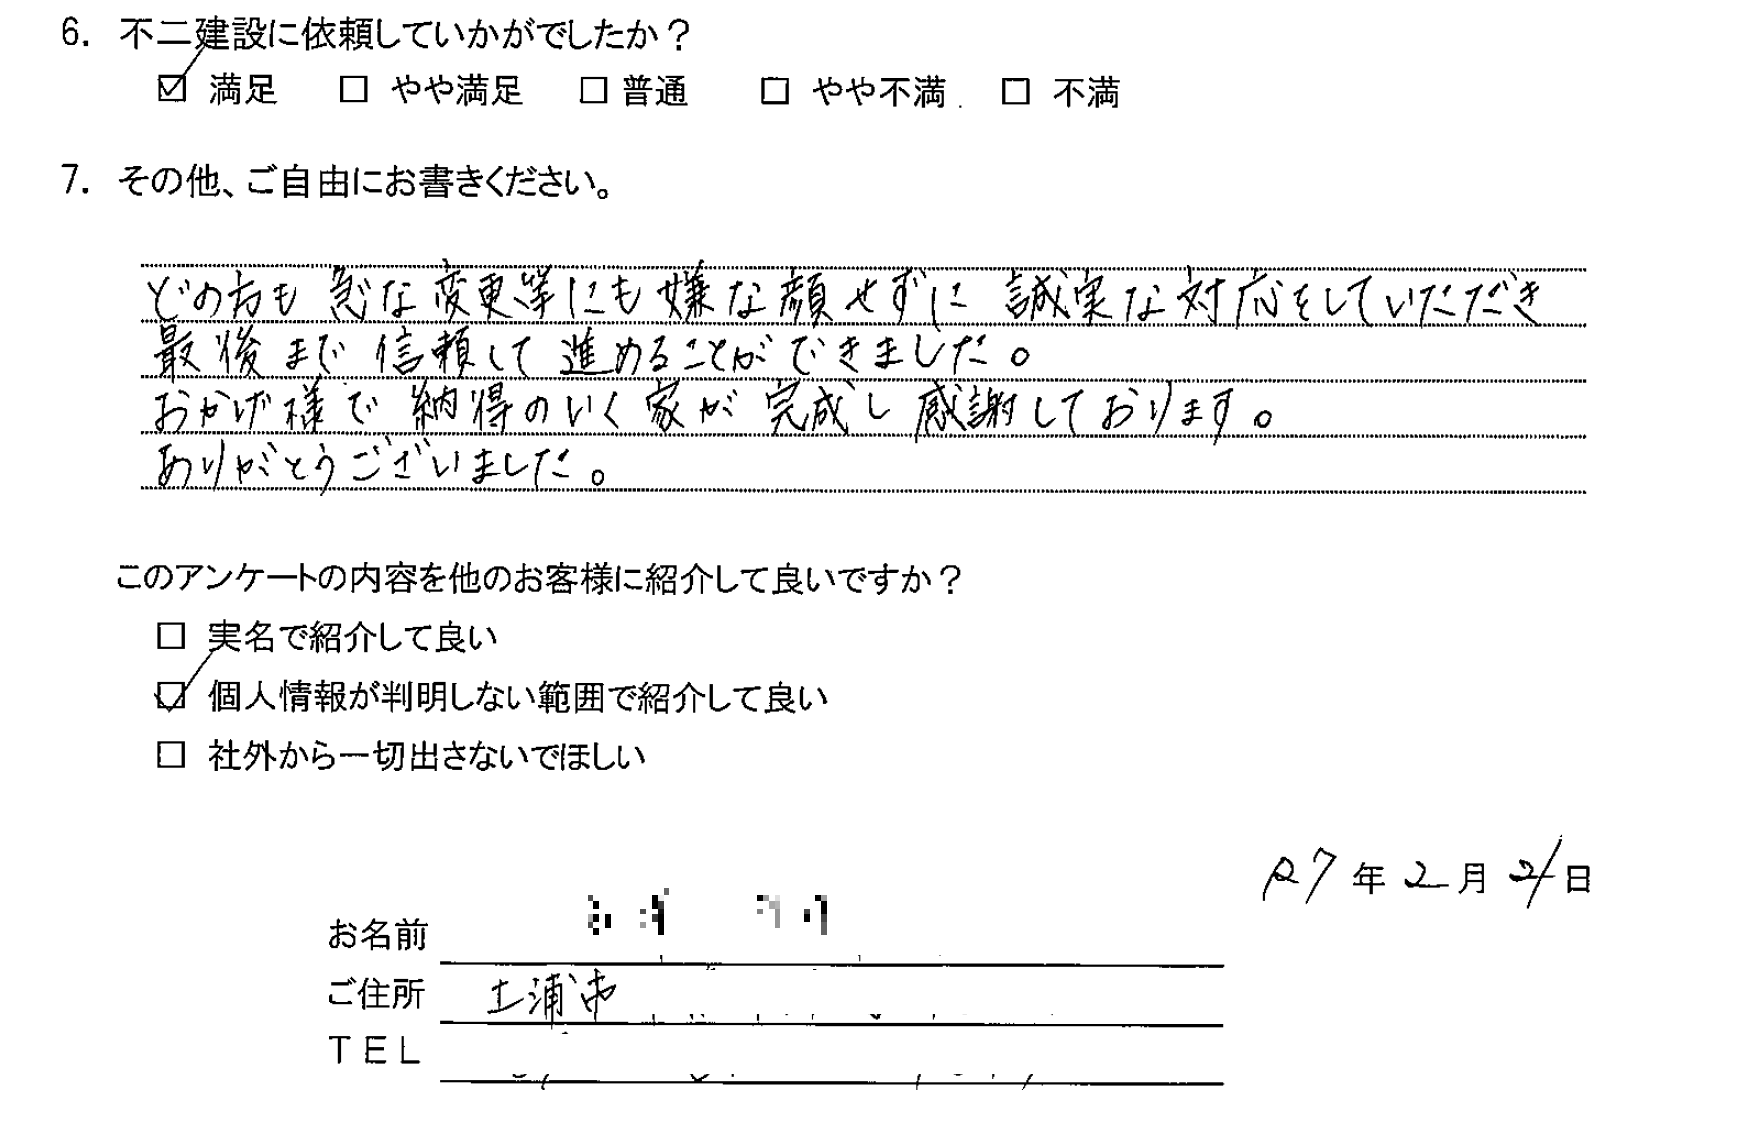 6. 不二建設に依頼していかがでしたか？
☑ 満足 □ やや満足 □ 普通 □ やや不満 □ 不満
7. その他、ご自由にお書きください。
どの方も急な変更等にも嫌な顔せずに誠実な対応をしていただき
最後まで信頼して進めることができました。
おかげ様で納得のいく家が完成し感謝しております。
ありがとうございました。
このアンケートの内容を他のお客様に紹介して良いですか？
□ 実名で紹介して良い
☑ 個人情報が判明しない範囲で紹介して良い
□ 社外から一切出さないでほしい
R7年2月21日
お名前
ご住所 土浦市
ＴＥＬ